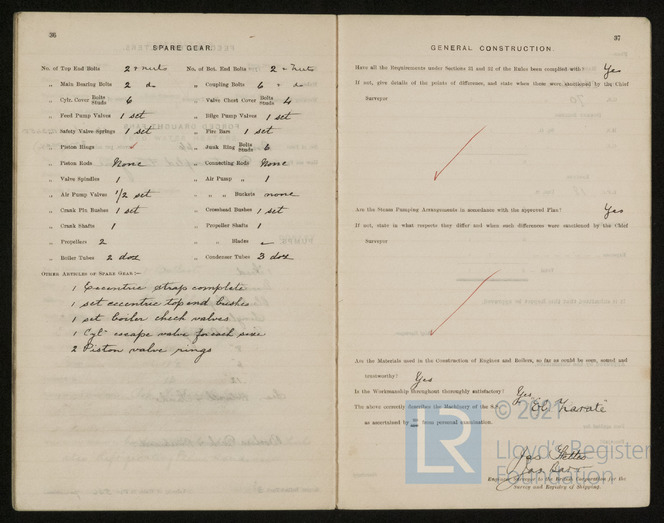 36
SPARE GEAR.
No. of Top End Bolts 2 + nuts No. of Bot. End Bolts 2 + nuts
„ Main Bearing Bolts 2 do „ Coupling Bolts 6 „ do
„ Cylr. Cover Bolts Studs 6 „ Valve Chest Cover Bolts Studs 4
„ Feed Pump Valves 1 set „ Bilge Pump Valves 1 set
„ Safety Valve Springs 1 set „ Fire Bars 1 set
„ Piston Rings ✓ „ Junk Ring Bolts Studs 6
„ Piston Rods None „ Connecting Rods None
„ Valve Spindles 1 „ Air Pump „ 1
„ Air Pump Valves 1/2 set „ „ Buckets none
„ Crank Pin Bushes 1 set „ Crosshead Bushes 1 set
„ Crank Shafts 1 „ Propeller Shafts 1
„ Propellers 2 „ „ Blades
„ Boiler Tubes 2 doz „ Condenser Tubes 3 doz
OTHER ARTICLES OF SPARE GEAR:—
1 Eccentric strap complete
1 set eccentric top end bushes
1 set boiler check valves
1 Cylr escape valve for each size
2 Piston valve rings
37
GENERAL CONSTRUCTION.
Have all the Requirements under Sections 31 and 32 of the Rules been complied with? Yes
If not, give details of the points of difference, and state when these were sanctioned by the Chief
Surveyor
Are the Steam Pumping Arrangements in accordance with the approved Plan? Yes
If not, state in what respects they differ and when such differences were sanctioned by the Chief
Surveyor
Are the Materials used in the Construction of Engines and Boilers, so far as could be seen, sound and
trustworthy? Yes
Is the Workmanship throughout thoroughly satisfactory? Yes
The above correctly describes the Machinery of the S.S. "El
as ascertained by from personal examination.
Engineer Surveyor to the British Corporation for the
Survey and Registry of Shipping.
© 2021
LR
Lloyd's Register
Foundation